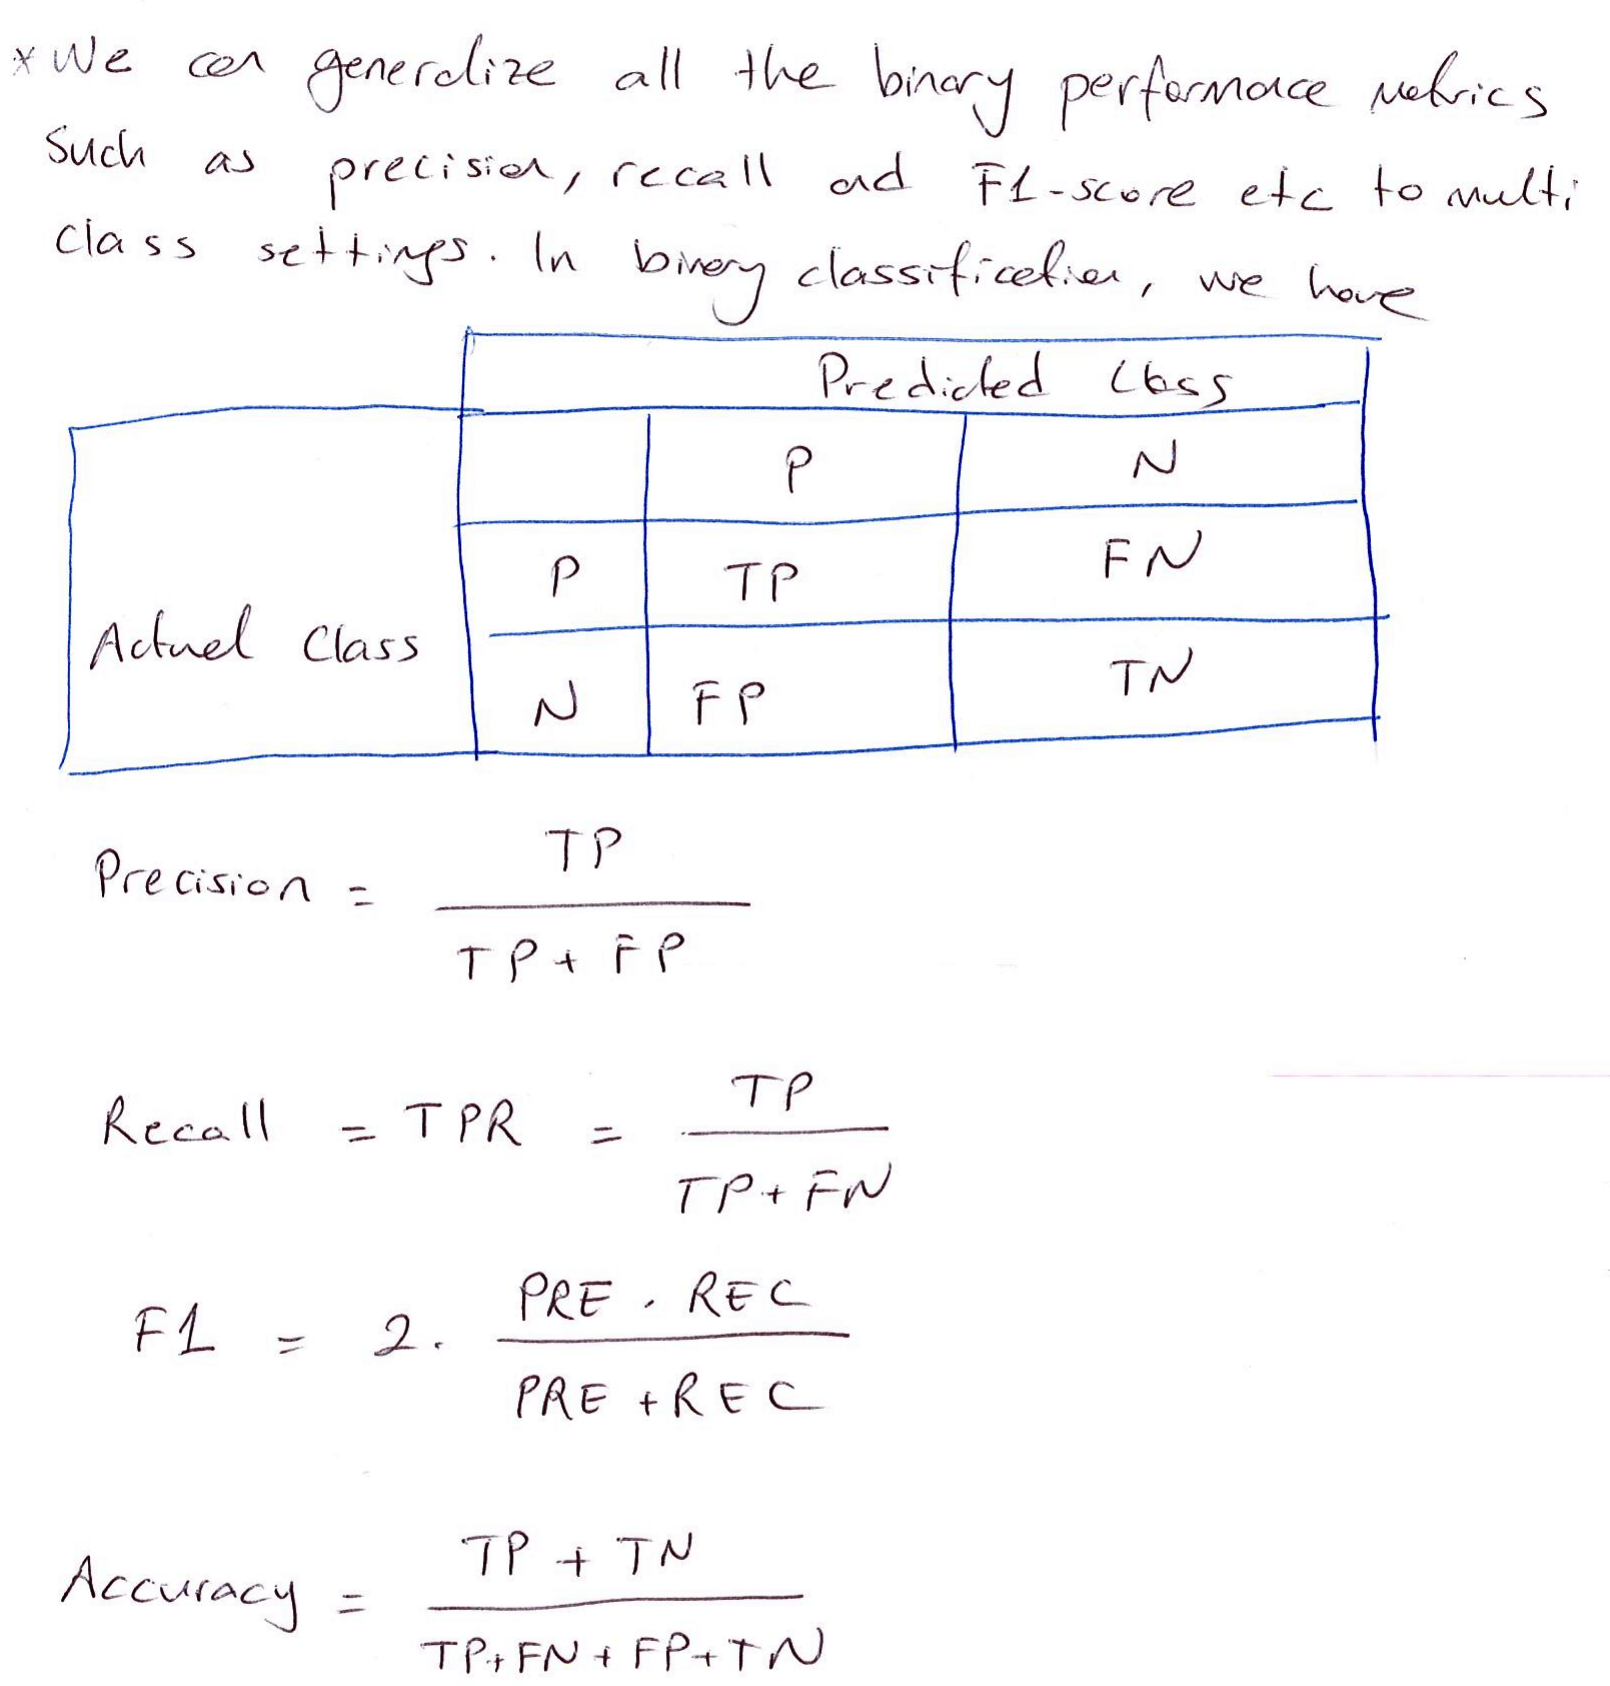 * We can generalize all the binary performance metrics
Such as precision, recall and F1-score etc to multi
class settings. In binary classification, we have
Predicted Class
P N
P TP FN
Actual Class
N FP TN
Precision = TP / TP + FP
Recall = TPR = TP / TP + FN
F1 = 2 . PRE . REC / PRE + REC
Accuracy = TP + TN / TP + FN + FP + TN